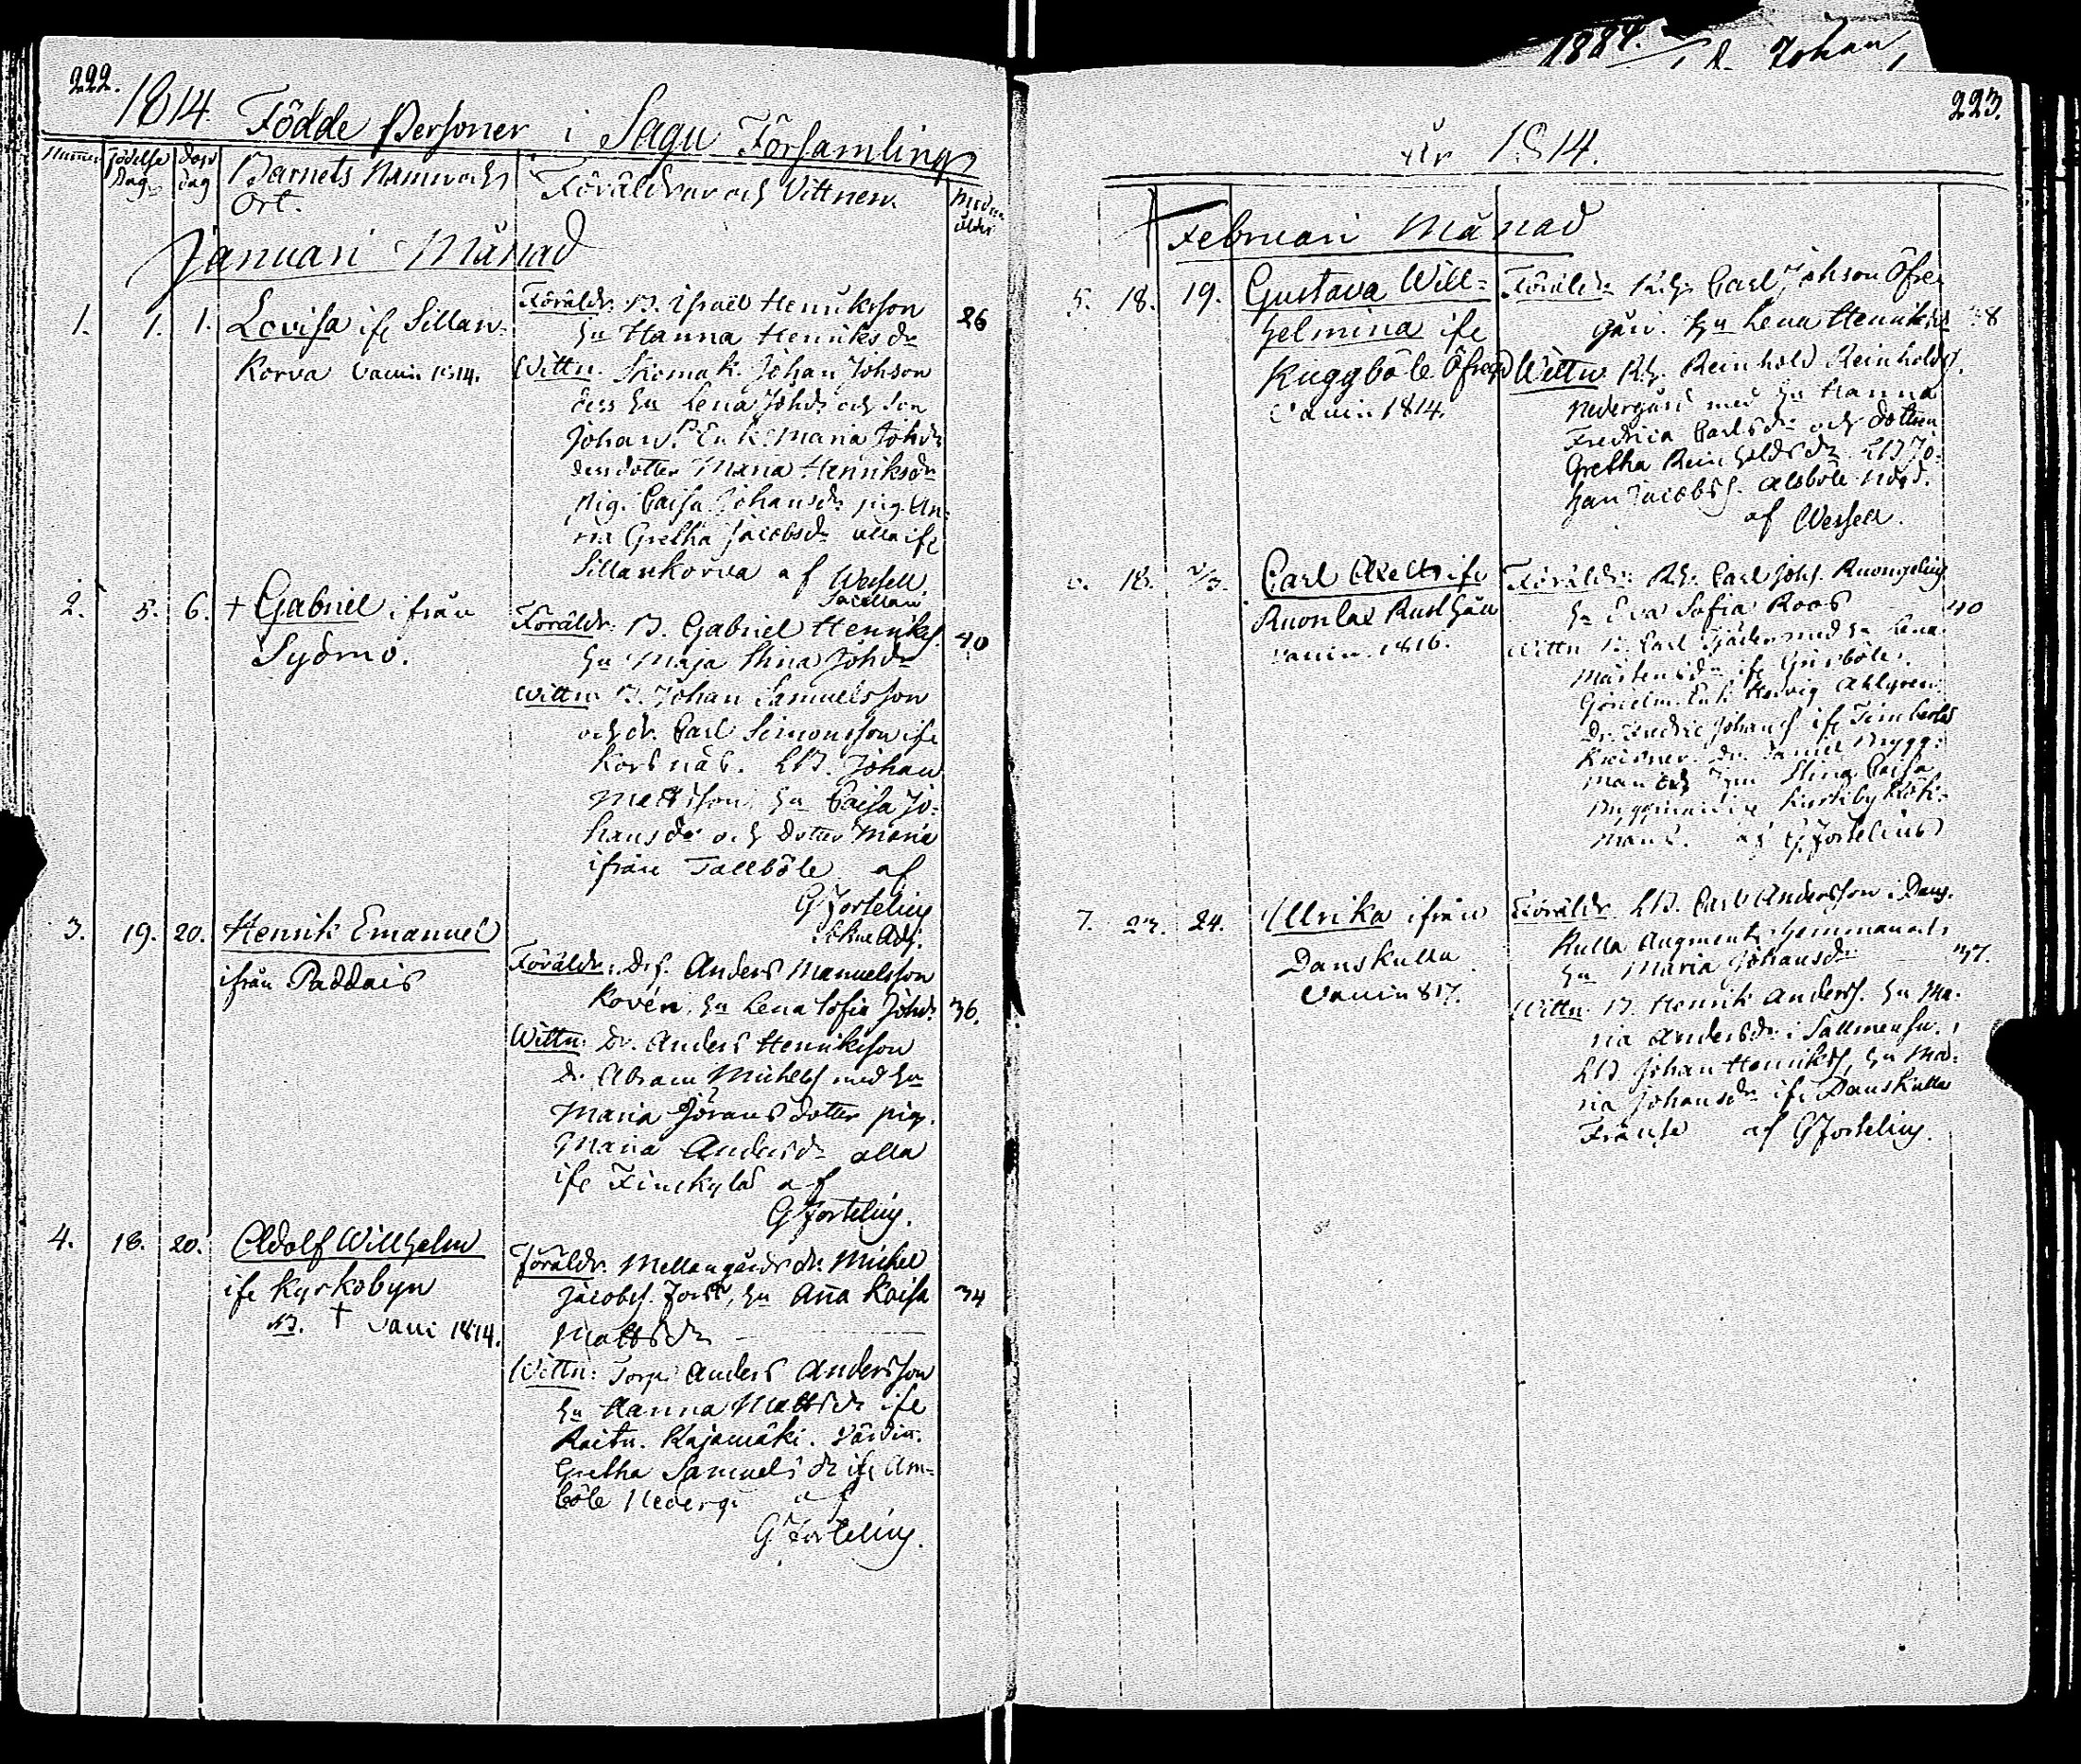 222.
1814. Födde Personer i Sagu Församling
Numer
Födelse Dag
Dop dag
Barnets Namn och Ort.
Föräldrar och Vittnen.
Modrens ålder
Januari Månad
1. 1. 1. Lovisa ifr Sillan-
korva Vaccin 1814.
Föräldr. B. Israël Henriksson 26
hu Hanna Henriksdr
Wittn. Skomak. Johan Johson
dess hu Lena Johdr och son
Johan. Enk. Maria Johdr
dess dotter Maria Henriksdr
pig. Caisa Johansdr pig. An-
na Gretha Jacobsdr alla ifr
Sillankorva af Wessell.
Sacellan.
2. 5. 6. + Gabriel ifrån
Sydmo.
Föräldr. B. Gabriel Henriks. 40
hu Maja Stina Johdr
Wittn. B. Johan Samuelsson
och dr. Carl Simonsson ifr
Korsnäs. LB. Johan
Mattsson, hu Caisa Jo-
hansdr och dotter Maria
ifrån Tallböle af
G Fortelius
Sokne Adj.
3. 19. 20. Henrik Emanuel
ifrån Paddais
Föräldr. Anders Manuelsson
Rovén, hu Lena Sofia Johdr 36.
Wittn: Dr. Anders Henriksson
dr. Abram Michels med hu
Maria Jörans dotter pig.
Maria Andersdr alla
ifr Finskylas af
G Fortelius.
4. 18. 20. Adolf Wilhelm
ifr Kyrkobyn
† Vacci 1814.
Föräldr. Mellangårds dr. Michel
Jacobs. Forss, hu Aña Kaisa 34
Mattsdr
Wittn: Torp. Anders Andersson
hu Hanna Mattsdr ifr
Raitn. Kajamäki. Värdin.
Gretha Samuelsdr ifr Am-
böle Nederg. af
G Fortelius.
1884.
Johan
223.
år 1814.
Februari Månad
5. 18. 19. Gustava Will-
helmina ifr
Kuggböle Öfregd
Vaccin 1814.
Föräldr. Rh. Carl Johson Öfre-
gård. hu Lena Henriksdr
Wittn. Rh. Reinhold Reinholds.
Nedergård med hu Hanna
Fredrica Carlsdr och dottren
Gretha Reinholdsdr. LB Jo-
han Jacobss. Alsböle Nдgd.
af Wessell.
18. 2/3. Carl Axel ifr
Ruonlax Rusthåll
vaccin. 1816.
Föräldr. Rh. Carl Johs. Ruongelius
hu Eva Sofia Roos 40
Wittn. Carl Fjäder med hu Lena
Mårtensdr ifr Gursböle.
Hedvig Ahlgren
Dr. Fredric Johans ifr Timberlas
Dr. Daniel Brygg-
man och Stina Caisa
af G Fortelius
7. 23. 24. Ulrika ifrån
Danskulla
Vaccin 817.
Föräldr. LB. Carl Andersson i Dans-
kulla Augments hemman och
hu Maria Johansdr 37.
Wittn. B. Henrik Anderss. hu Ma-
ria Andersdr i Sallmensu.
LB Johan Henriks, hu Ma-
ria Johansdr ifr Danskulla
Frälse af G Fortelius.